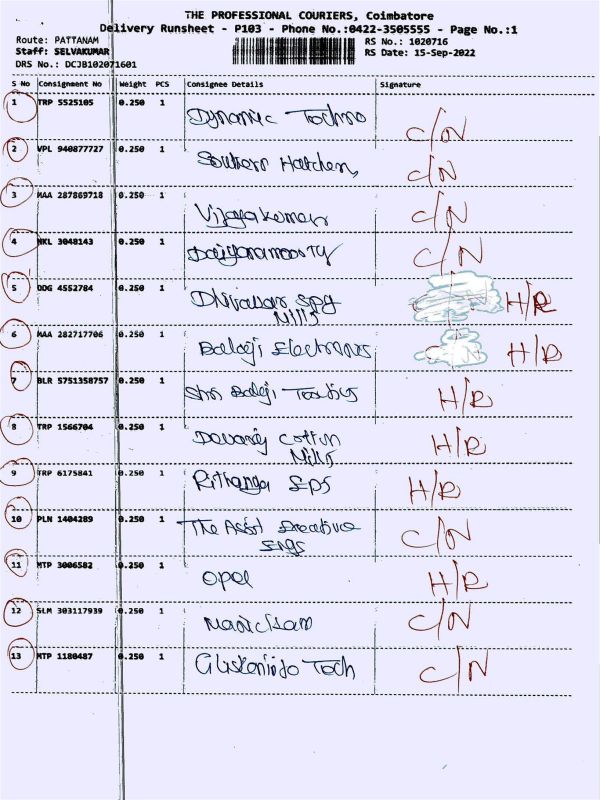 THE PROFESSIONAL COURIERS, Coimbatore
Delivery Runsheet - P103 - Phone No.:0422-3505555 - Page No.:1
Route: PATTANAM
RS No.: 1020716
Staff: SELVAKUMAR
RS Date: 15-Sep-2022
DRS No.: DCJB102071601
S No Consignment No Weight PCS Consignee Details Signature
1 TRP 5525105 0.250 1 Dynamic Techno C/N
2 VPL 940877727 0.250 1 Southern C/N
3 MAA 287869718 0.250 1 Vijayakumar C/N
4 NKL 3048143 0.250 1 C/N
5 ODG 4552784 0.250 1 Spg H/R
Mills
6 MAA 282717706 0.250 1 Balaji Electronics C/N H/R
7 BLR 5751358757 0.250 1 Shri Balaji H/R
8 TRP 1566704 0.250 1 Cotton H/R
Mills
9 TRP 6175841 0.250 1 H/R
10 PLN 1404289 0.250 1 The C/N
11 MTP 3006582 0.250 1 Opel H/R
12 SLM 303117939 0.250 1 C/N
13 MTP 1180487 0.250 1 Tech C/N